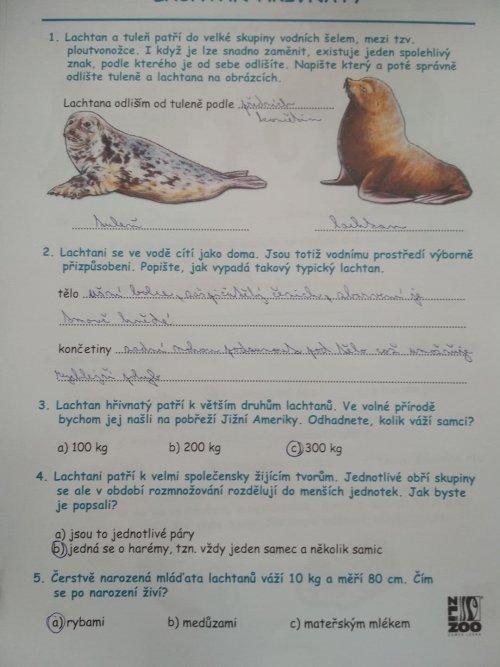 LACHTAN HŘIVNATÝ
1. Lachtan a tuleň patří do velké skupiny vodních šelem, mezi tzv.
ploutvonožce. I když je lze snadno zaměnit, existuje jeden spolehlivý
znak, podle kterého je od sebe odlišíte. Napište který a poté správně
odlište tuleně a lachtana na obrázcích.
Lachtana odliším od tuleně podle předních
končetin
tuleň lachtan
2. Lachtani se ve vodě cítí jako doma. Jsou totiž vodnímu prostředí výborně
přizpůsobeni. Popište, jak vypadá takový typický lachtan.
tělo ušní bolce, zašpičatělý čenich, zbarvení je
tmavě hnědé
končetiny zadní mohou podsunout pod tělo což umožňuje
rychlejší pohyb
3. Lachtan hřivnatý patří k větším druhům lachtanů. Ve volné přírodě
bychom jej našli na pobřeží Jižní Ameriky. Odhadnete, kolik váží samci?
a) 100 kg b) 200 kg c) 300 kg
4. Lachtani patří k velmi společensky žijícím tvorům. Jednotlivé obří skupiny
se ale v období rozmnožování rozdělují do menších jednotek. Jak byste
je popsali?
a) jsou to jednotlivé páry
b) jedná se o harémy, tzn. vždy jeden samec a několik samic
5. Čerstvě narozená mláďata lachtanů váží 10 kg a měří 80 cm. Čím
se po narození živí?
a) rybami b) medúzami c) mateřským mlékem
ZOO